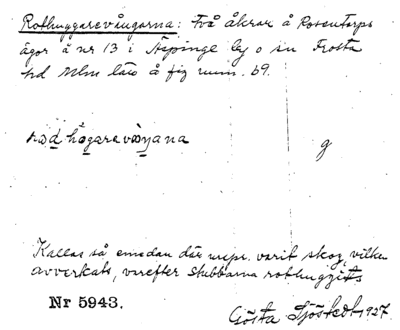 Rothuggarevångarna: Två åkrar å Rosentorps
ägor å nr 13 i Äspinge by o sn Frosta
hd Mlm län å fig num. 69.
g
Kallas så emedan där urspr. varit skog, vilken
avverkats, varefter stubbarna rothuggits
Nr 5943.
Gösta Sjöstedt 1927.